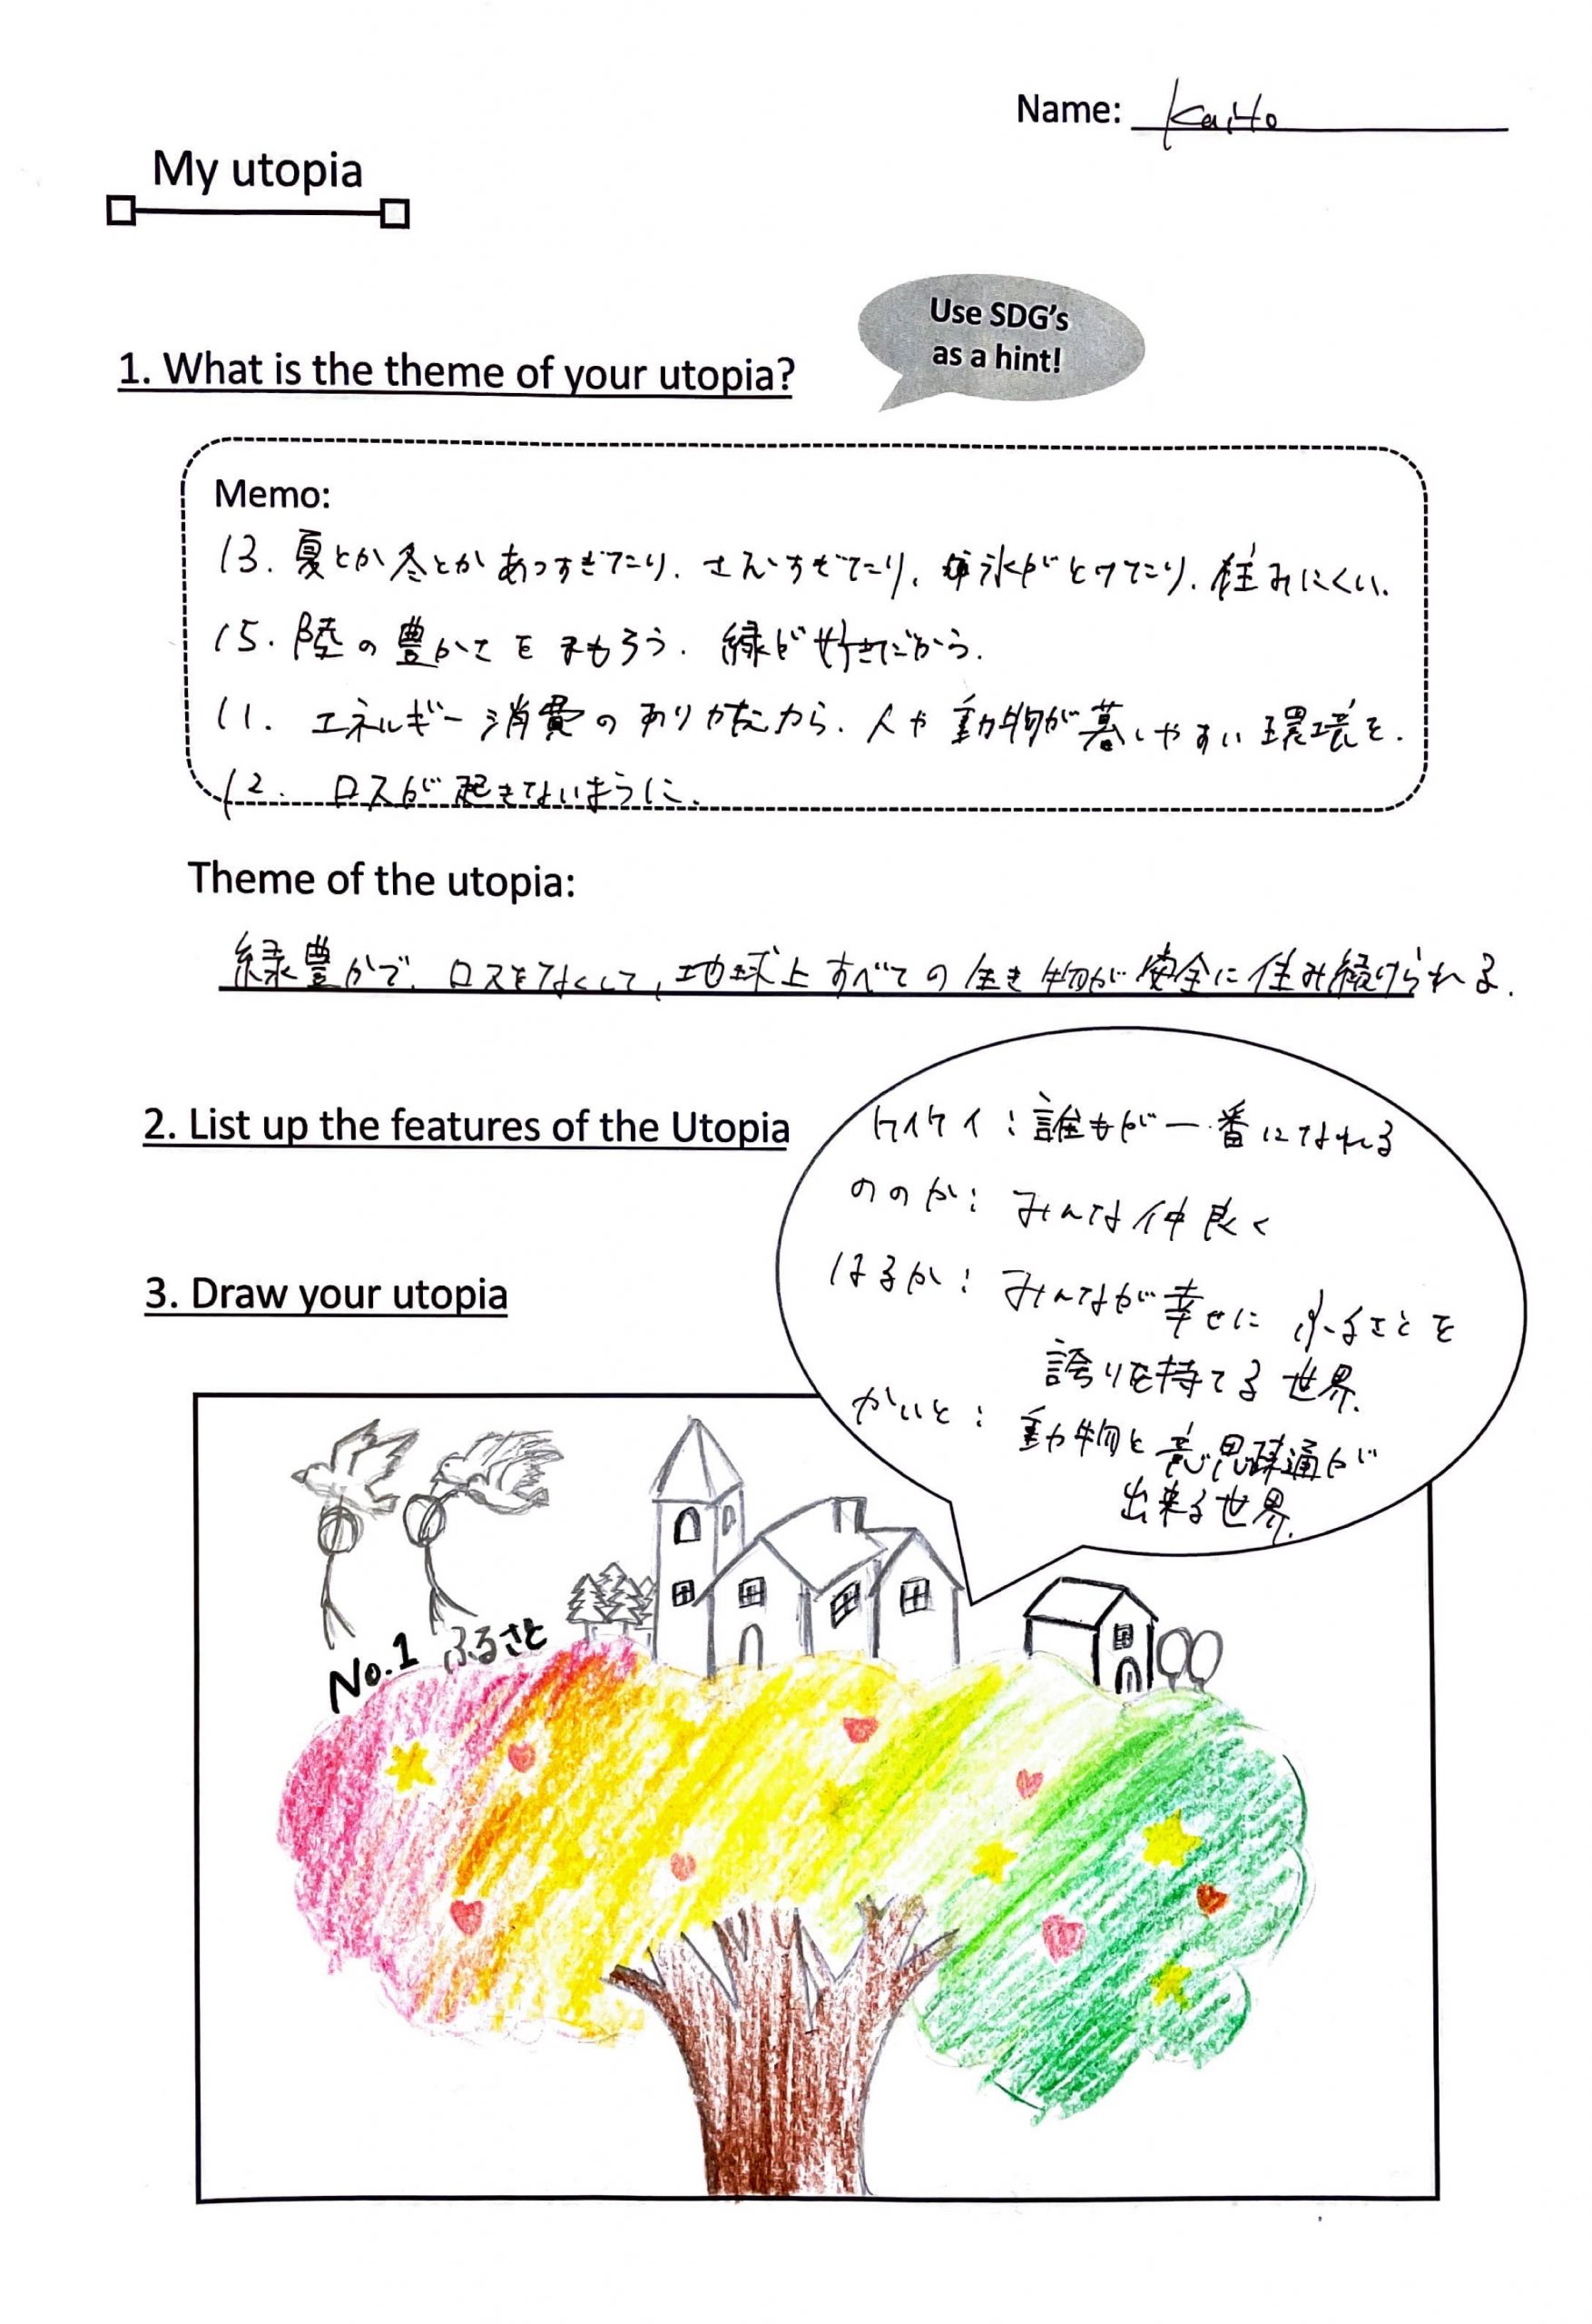 Name: Kaito
My utopia
Use SDG's
as a hint!
1. What is the theme of your utopia?
Memo:
13. 夏とか冬とかあつすぎたり、さむすぎたり、氷がとけてたり、住みにくい。
15. 陸の豊かさをまもろう。緑が好きだから。
11. エネルギー消費のありかたから、人や動物が暮しやすい環境を。
12. ロスが起きないように。
Theme of the utopia:
緑豊かで、ロスをなくして、地球上すべての生き物が安全に住み続けられる。
2. List up the features of the Utopia
ケイケイ：誰もが一番になれる
ののか：みんな仲良く
はるか：みんなが幸せに ふるさとを
誇りを持てる世界。
かいと：動物と意思疎通が
出来る世界。
3. Draw your utopia
No.1 ふるさと